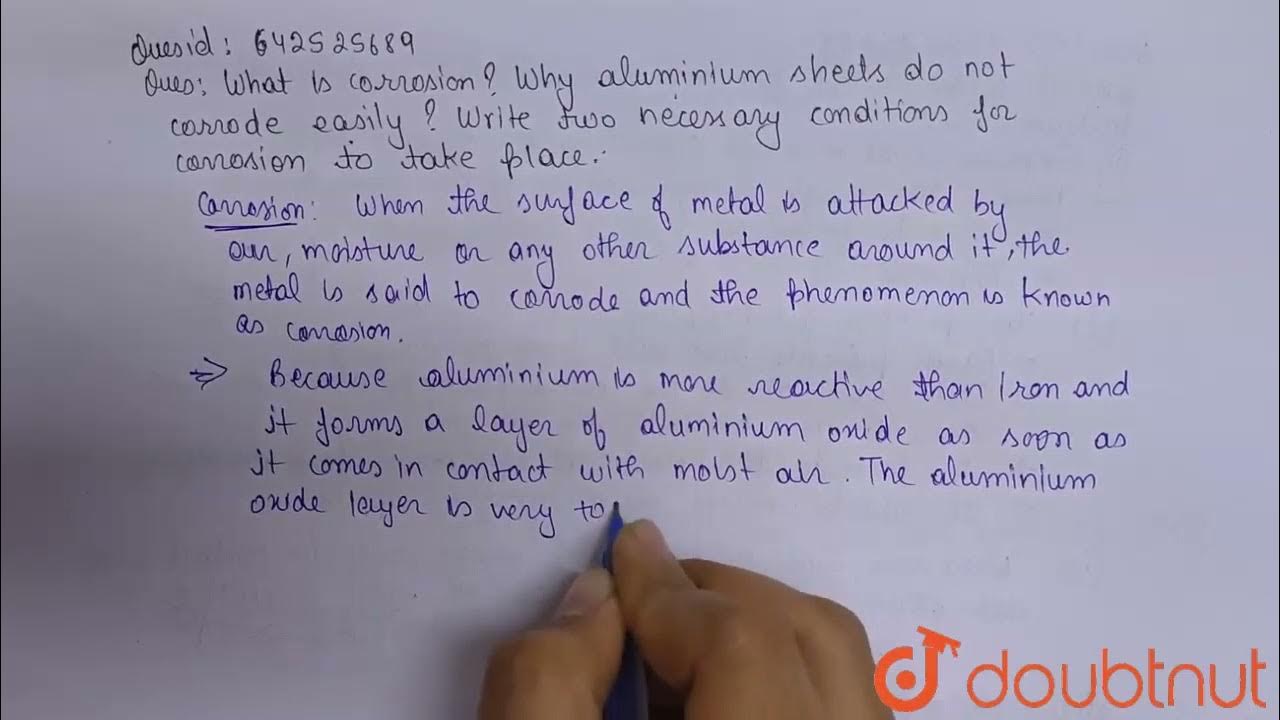 Quesid: 642525689
Ques: What is corrosion? Why aluminium sheets do not
corrode easily? Write two necessary conditions for
corrosion to take place.
Corrosion: When the surface of metal is attacked by
air, moisture or any other substance around it, the
metal is said to corrode and the phenomenon is known
as corrosion.
⇒ Because aluminium is more reactive than Iron and
it forms a layer of aluminium oxide as soon as
it comes in contact with moist air. The aluminium
oxide layer is very to
doubtnut